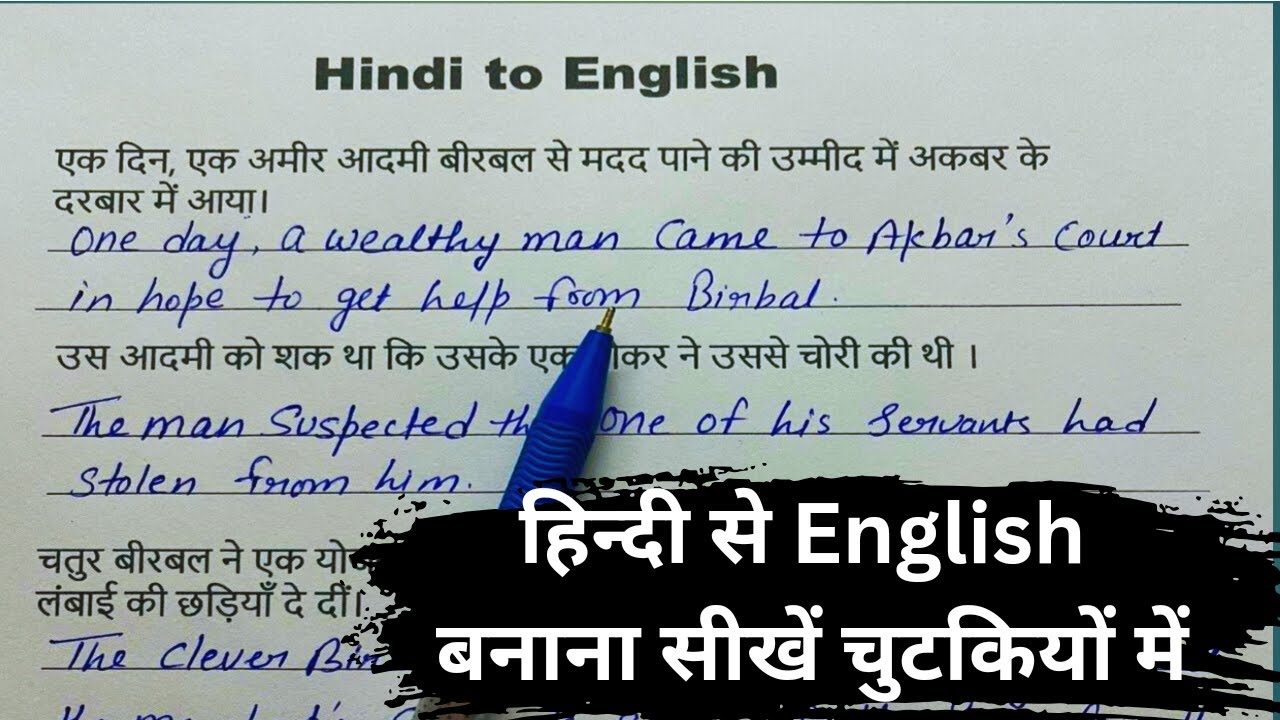 Hindi to English
एक दिन, एक अमीर आदमी बीरबल से मदद पाने की उम्मीद में अकबर के
दरबार में आया।
One day, a wealthy man Came to Akbar's Court
in hope to get help from Birbal.
उस आदमी को शक था कि उसके एक ने उससे चोरी की थी ।
The man Suspected one of his Servants had
Stolen from him.
चतुर बीरबल ने एक
लंबाई की छड़ियाँ दे दीं।
The Clever
हिन्दी से English
बनाना सीखें चुटकियों में